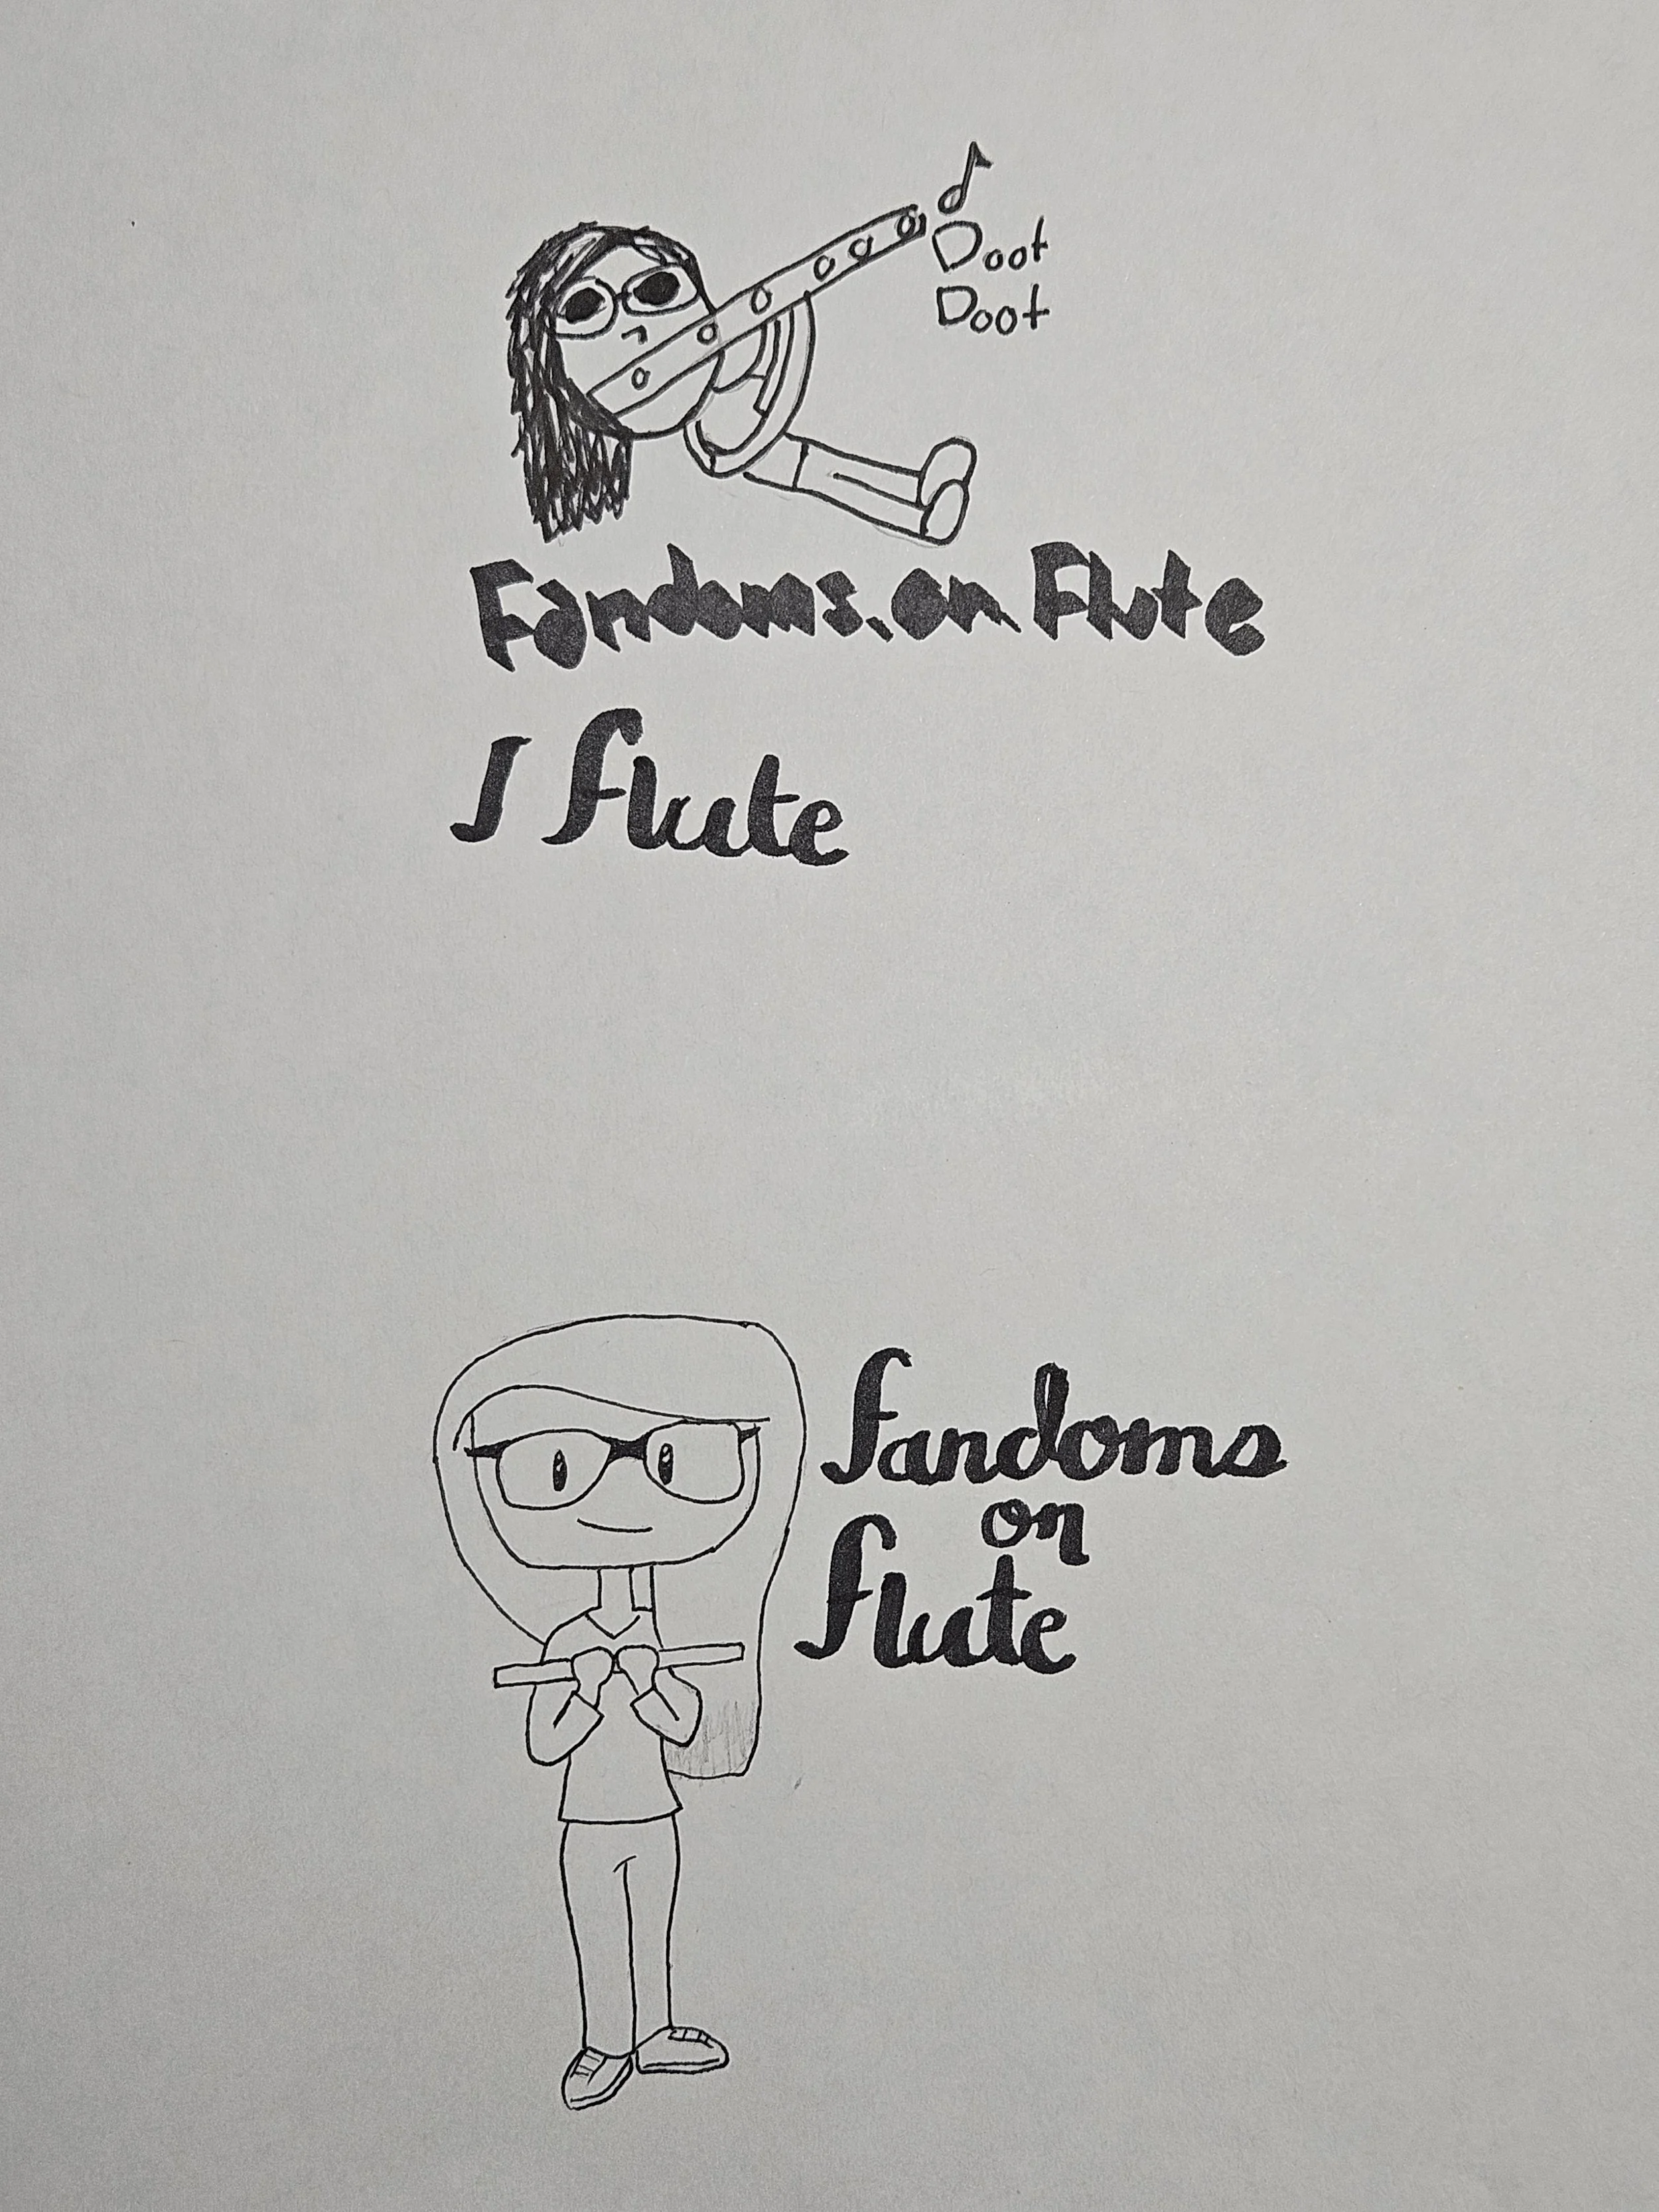 Doot
Doot
Fandoms.on Flute
I flute
fandoms
on
flute